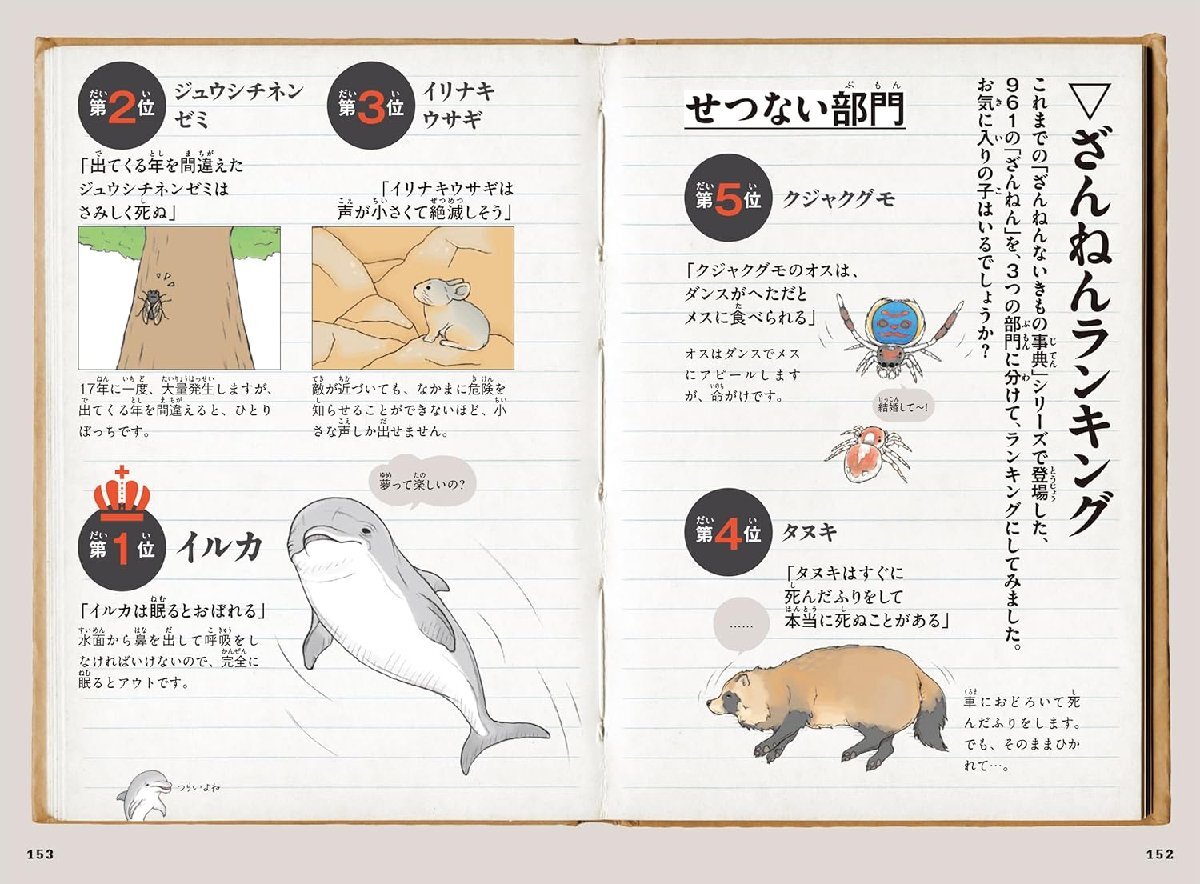 ▽ざんねんランキング
これまでの「ざんねんないきもの事典」シリーズで登場した、
961の「ざんねん」を、3つの部門に分けて、ランキングにしてみました。
お気に入りの子はいるでしょうか？
せつない部門
第5位 クジャクグモ
「クジャクグモのオスは、
ダンスがへただと
メスに食べられる」
オスはダンスでメス
にアピールします
が、命がけです。
結婚して〜!
第4位 タヌキ
「タヌキはすぐに
死んだふりをして
本当に死ぬことがある」
……
車におどろいて死
んだふりをします。
でも、そのままひか
れて…。
152
第3位 イリナキ
ウサギ
「イリナキウサギは
声が小さくて絶滅しそう」
敵が近づいても、なかまに危険を
知らせることができないほど、小
さな声しか出せません。
第2位 ジュウシチネン
ゼミ
「出てくる年を間違えた
ジュウシチネンゼミは
さみしく死ぬ」
17年に一度、大量発生しますが、
出てくる年を間違えると、ひとり
ぼっちです。
第1位 イルカ
「イルカは眠るとおぼれる」
水面から鼻を出して呼吸をし
なければいけないので、完全に
眠るとアウトです。
夢って楽しいの?
つらいよね
153